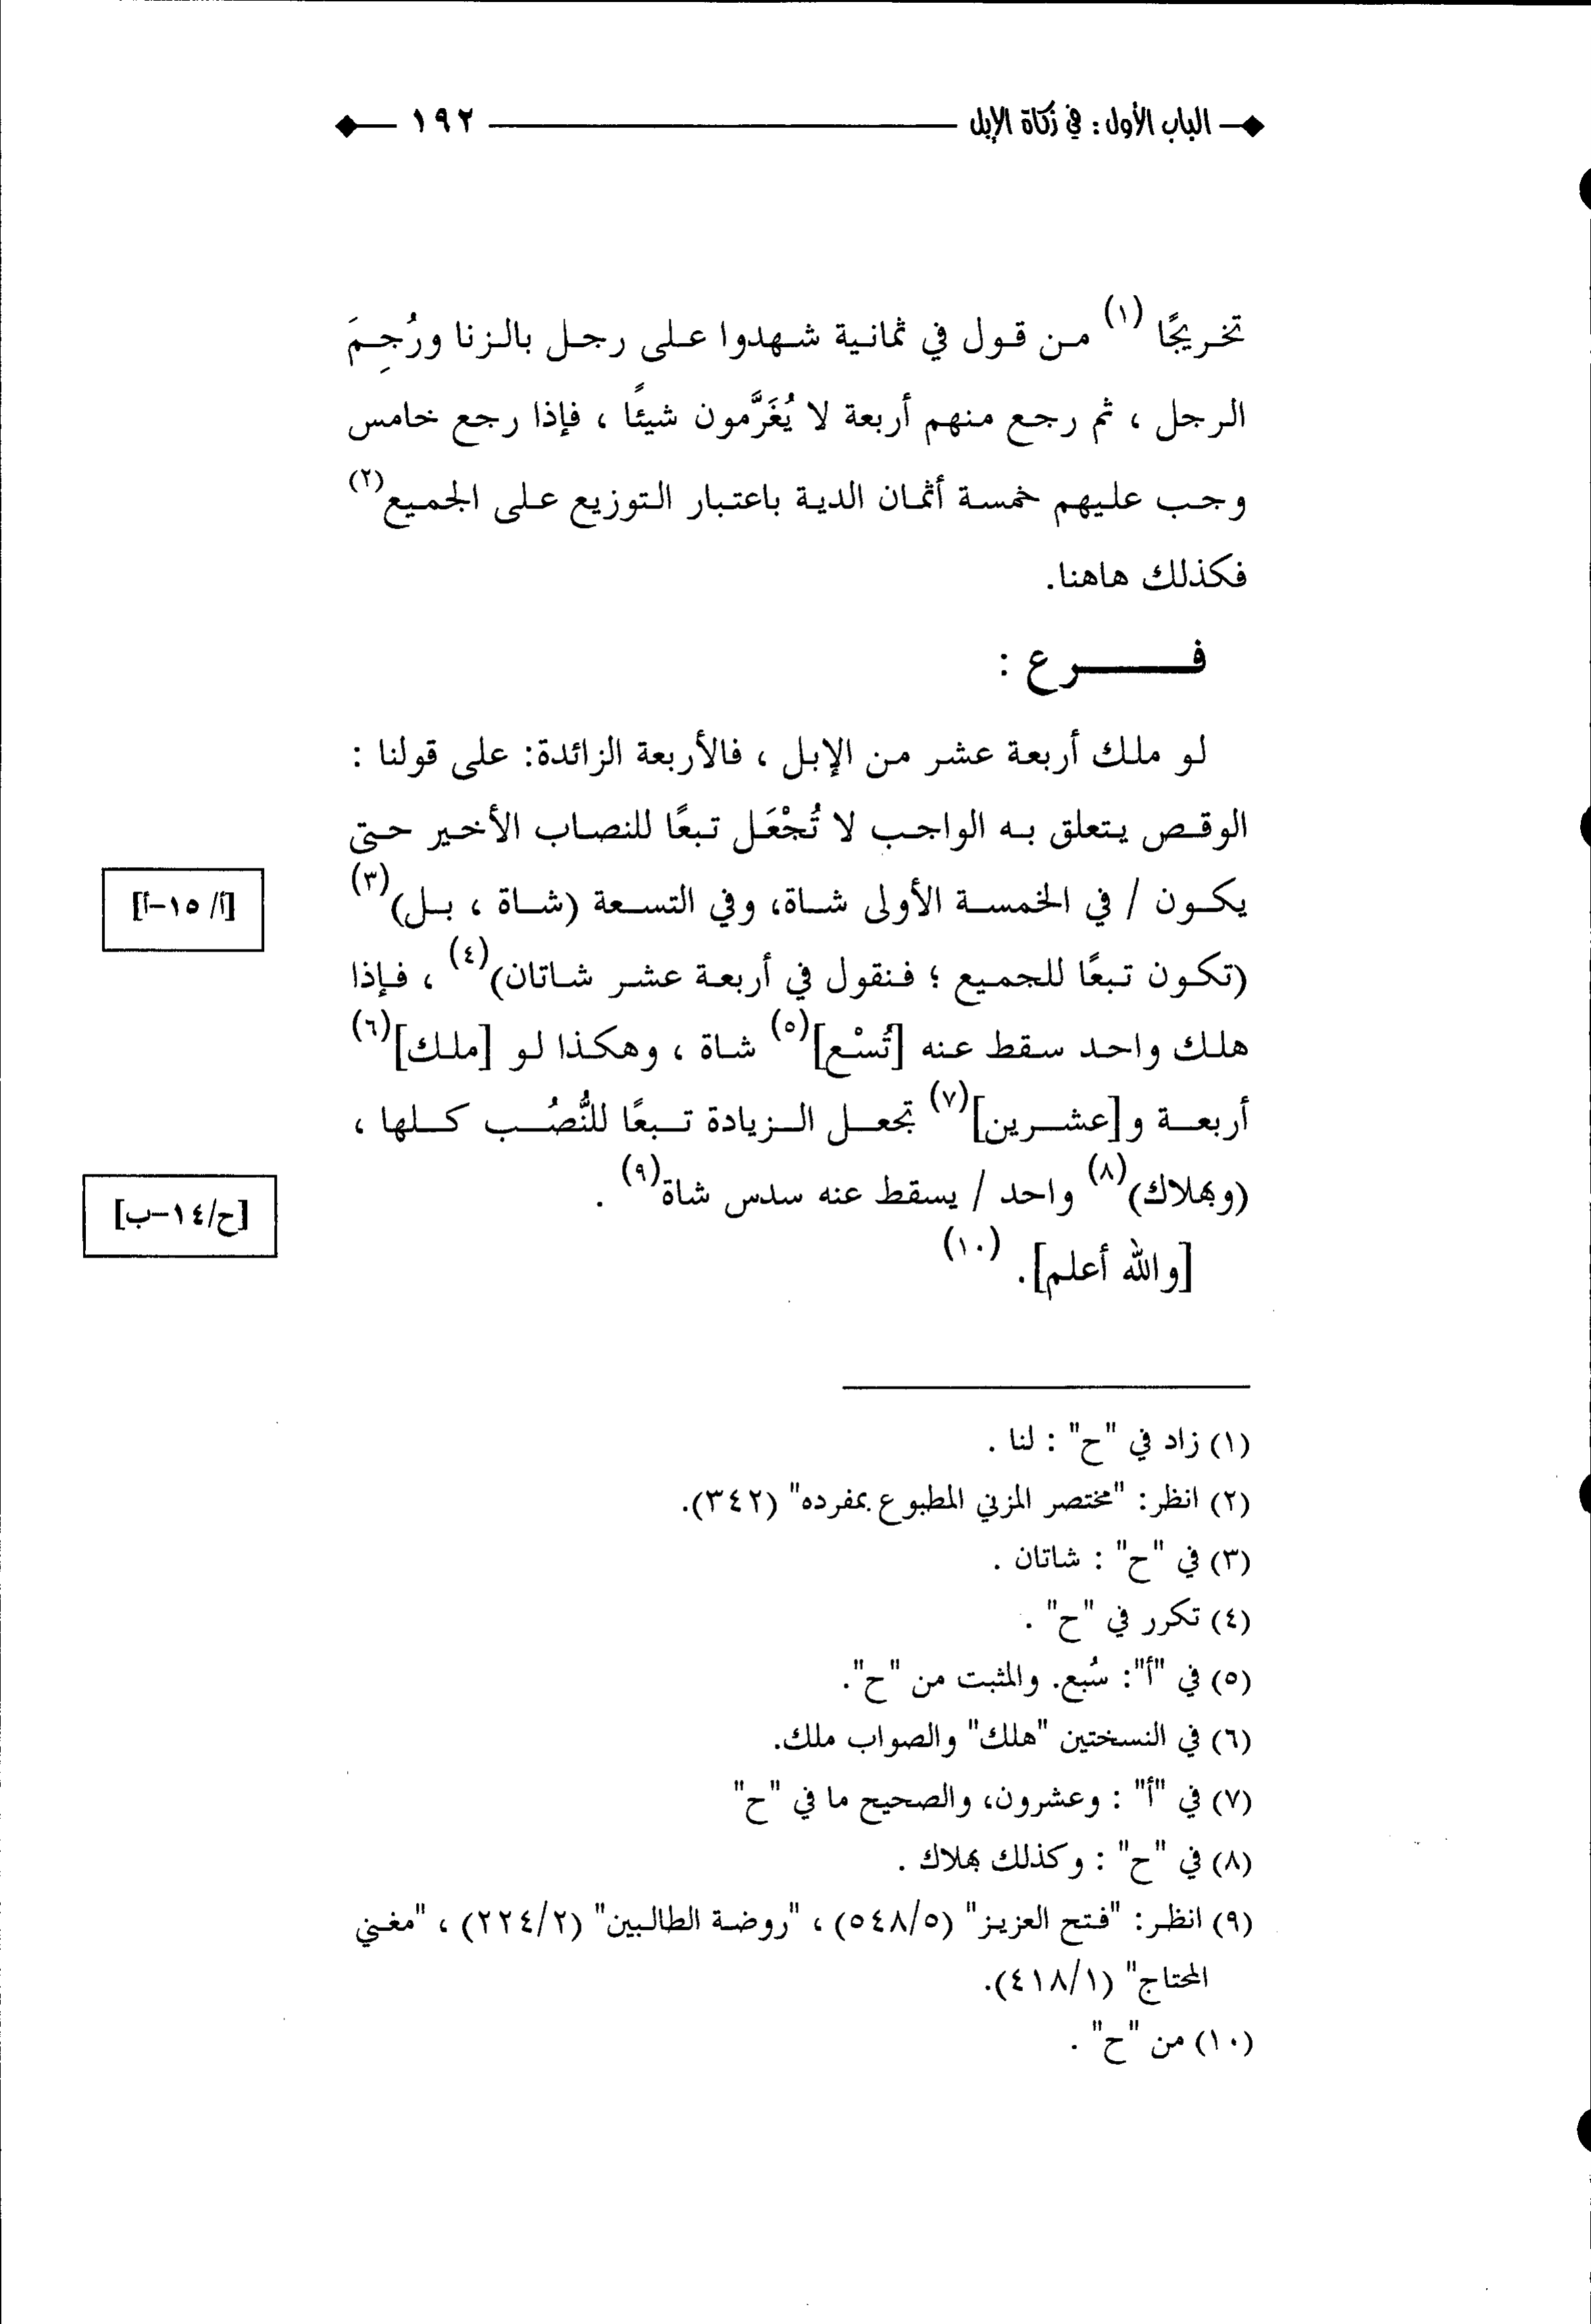 الباب الأول : في زكاة الإبل ١٩٢
تخريجًا (١) من قول في ثمانية شهدوا على رجل بالزنا ورُجِمَ
الرجل ، ثم رجع منهم أربعة لا يُغَرَّمون شيئًا ، فإذا رجع خامس
وجب عليهم خمسة أثمان الدية باعتبار التوزيع على الجميع(٢)
فكذلك هاهنا.
فـــــرع :
لو ملك أربعة عشر من الإبل ، فالأربعة الزائدة: على قولنا :
الوقص يتعلق به الواجب لا تُجْعَل تبعًا للنصاب الأخير حتى
يكون / في الخمسة الأولى شاة، وفي التسعة (شاة ، بل)(٣)
[أ/ ١٥-أ]
(تكون تبعًا للجميع ؛ فنقول في أربعة عشر شاتان)(٤) ، فإذا
هلك واحد سقط عنه [تُسْع](٥) شاة ، وهكذا لو [ملك](٦)
أربعة و[عشرين](٧) تجعل الزيادة تبعًا للنُّصُب كلها ،
(وبهلاك)(٨) واحد / يسقط عنه سدس شاة(٩) .
[ح/١٤-ب]
[والله أعلم]. (١٠)
(١) زاد في "ح" : لنا .
(٢) انظر: "مختصر المزني المطبوع بمفرده" (٣٤٢).
(٣) في "ح" : شاتان .
(٤) تكرر في "ح" .
(٥) في "أ": سُبع. والمثبت من "ح".
(٦) في النسختين "هلك" والصواب ملك.
(٧) في "أ" : وعشرون، والصحيح ما في "ح"
(٨) في "ح" : وكذلك بهلاك .
(٩) انظر: "فتح العزيز" (٥٤٨/٥) ، "روضة الطالبين" (٢٢٤/٢) ، "مغني
المحتاج" (٤١٨/١).
(١٠) من "ح" .